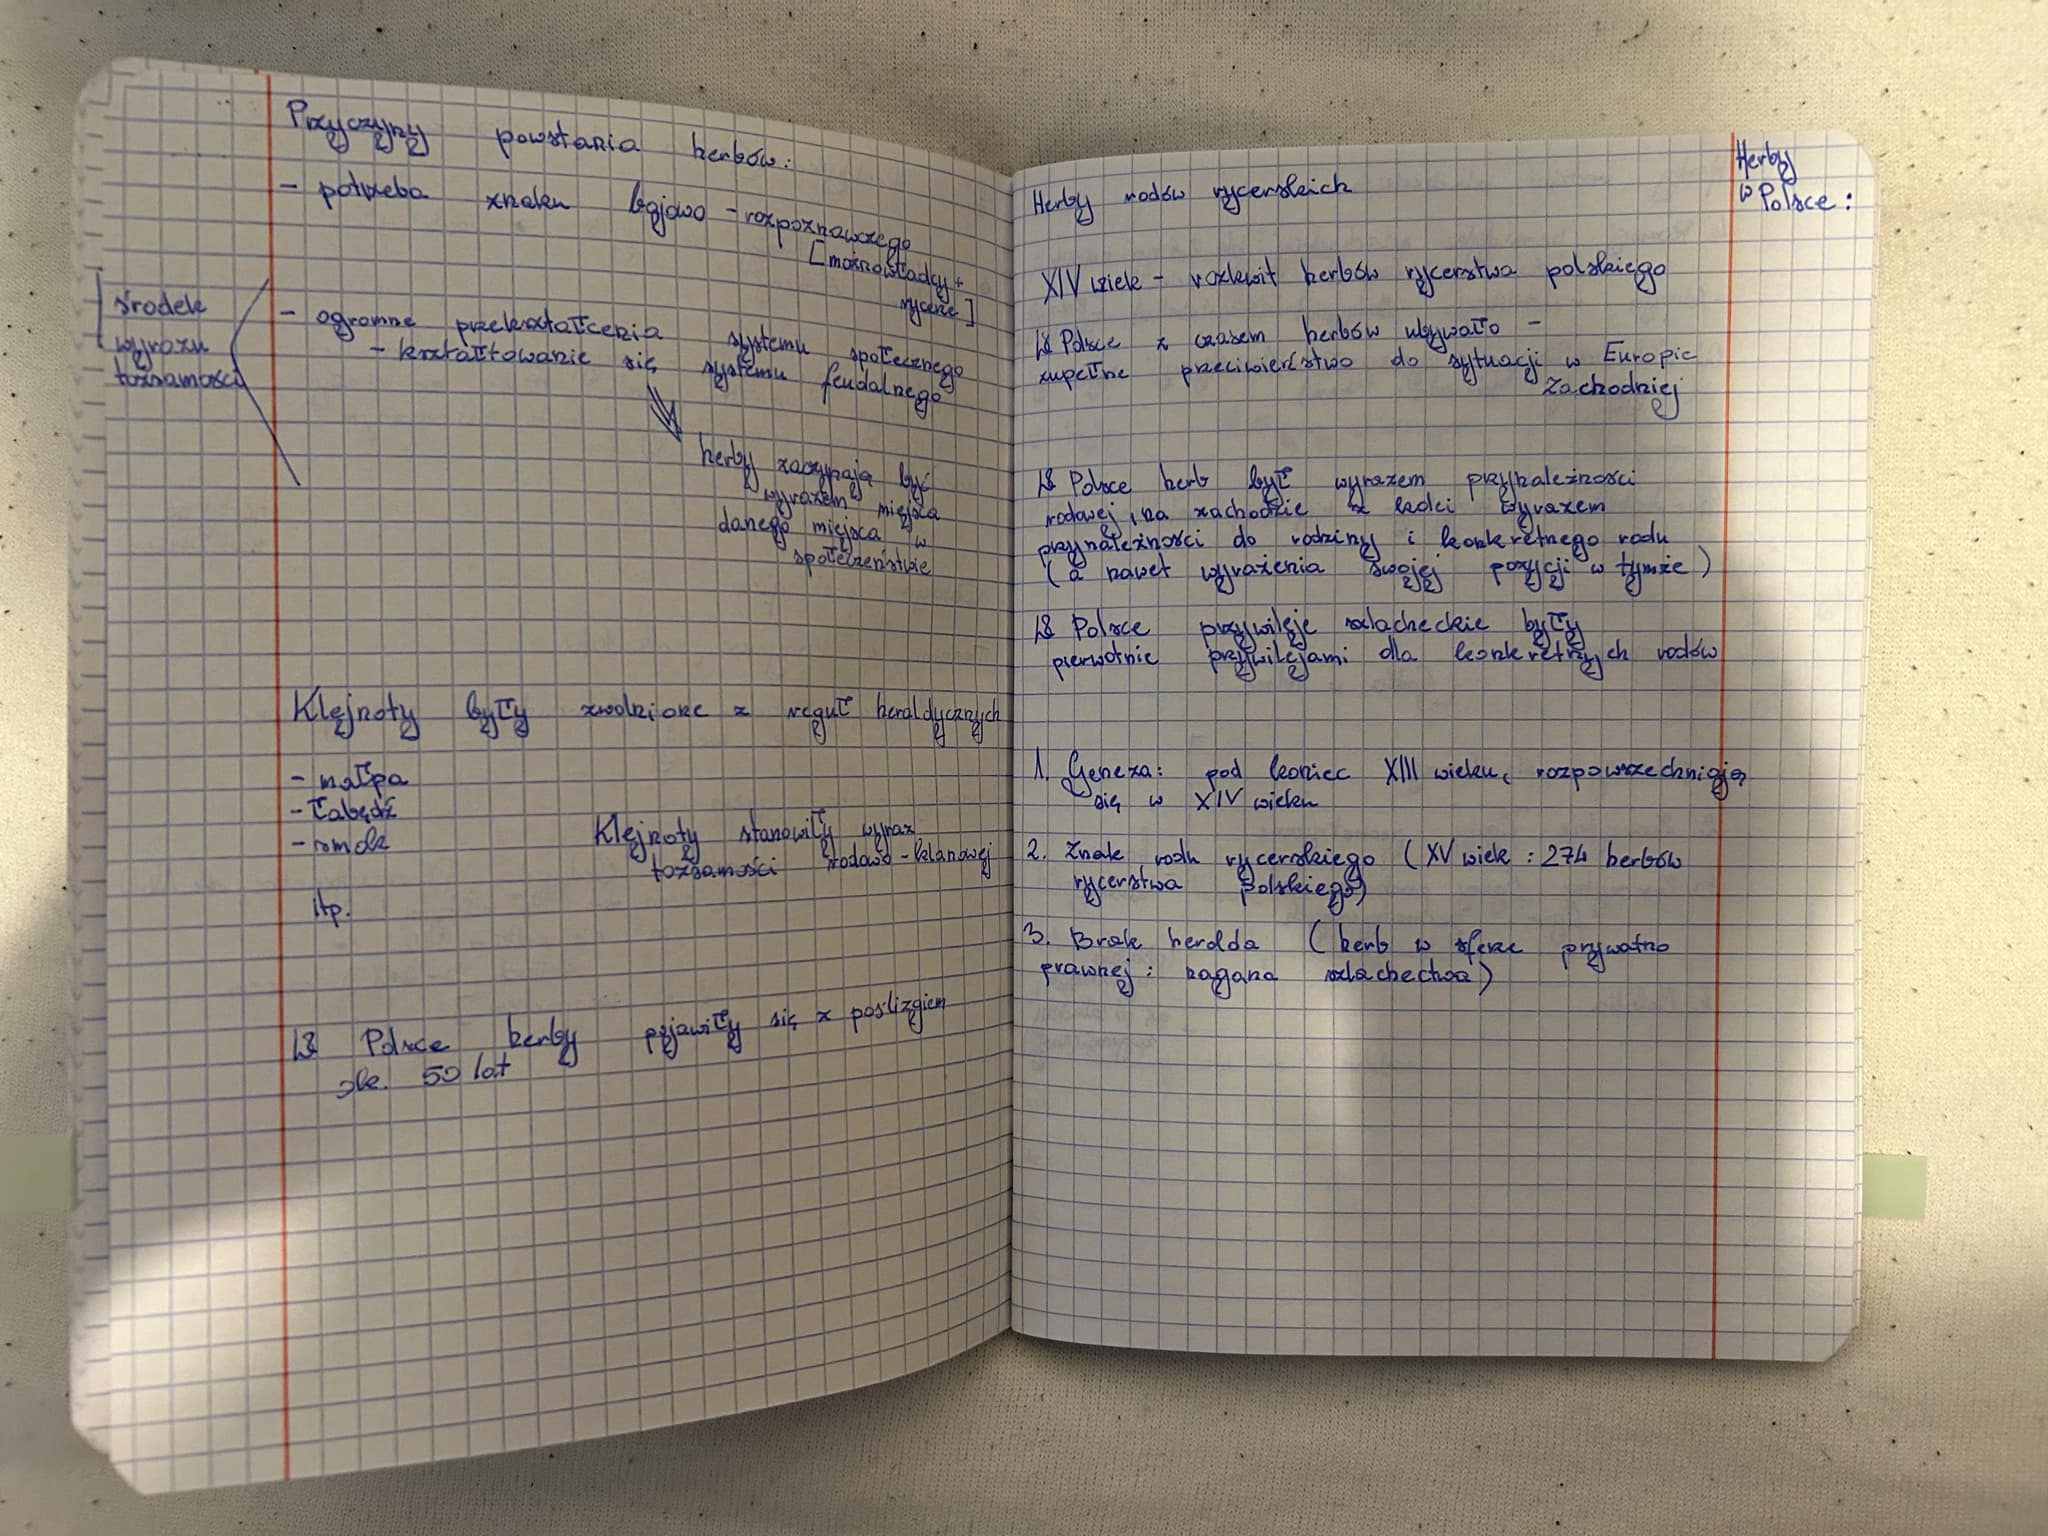 Przyczyny powstania herbów:
- potrzeba znaku bojowo - rozpoznawczego
[możnowładcy +
rycerze]
środek
wyrazu
tożsamości
- ogromne przekształcenia systemu społecznego
- kształtowanie się systemu feudalnego
herby zaczynają być
wyrazem miejsca
danego miejsca w
społeczeństwie
Klejnoty były zwolnione z reguł heraldycznych
- małpa
- łabędź
- smok
itp.
Klejnoty stanowiły wyraz
tożsamości rodowo - klanowej
W Polsce herby pojawiły się z poślizgiem
ok. 50 lat
Herby
w Polsce:
Herby rodów rycerskich
XIV wiek - rozkwit herbów rycerstwa polskiego
W Polsce z czasem herbów ubywało -
zupełne przeciwieństwo do sytuacji w Europie
Zachodniej
W Polsce herb był wyrazem przynależności
rodowej, na zachodzie z kolei wyrazem
przynależności do rodziny i konkretnego rodu
(a nawet wyrażenia swojej pozycji w tymże)
W Polsce przywileje szlacheckie były
pierwotnie przywilejami dla konkretnych rodów
1. Geneza: pod koniec XIII wieku, rozpowszechniają
się w XIV wieku
2. Znak rodu rycerskiego (XV wiek: 274 herbów
rycerstwa polskiego)
3. Brak herolda (herb w sferze prywatno
prawnej: nagana szlachectwa)